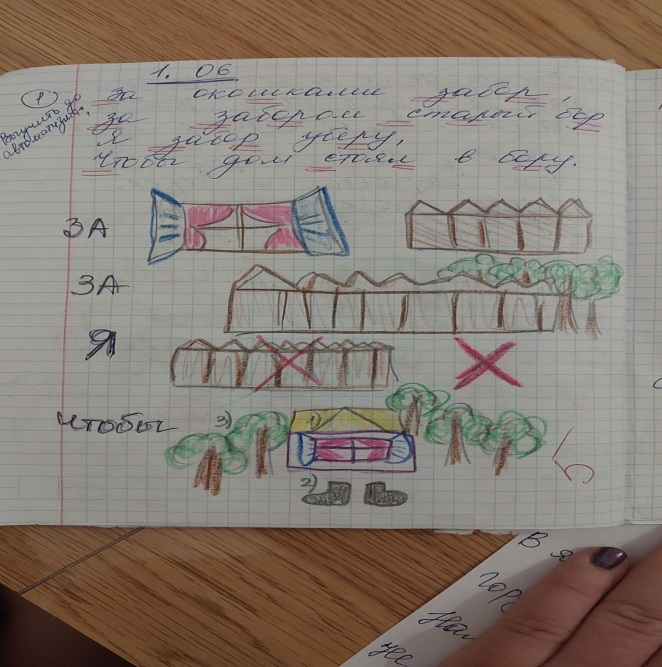 1. 06
1
Выучить до
автоматизма.
За окошками забор,
За забором старый бор
Я забор уберу,
Чтобы дом стоял в бору.
ЗА
ЗА
Я
Чтобы
3) 1)
2)
5
В я
гор
На
Не